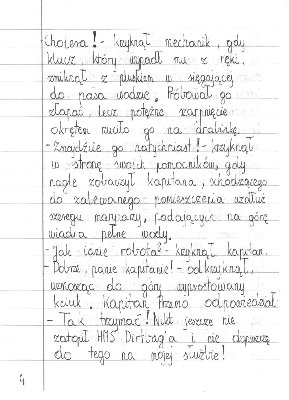 Cholera! - krzyknął mechanik, gdy
klucz, który wypadł mu z ręki,
zniknął z pluskiem w sięgającej
do pasa wodzie. Próbował go
złapać, lecz potężne szarpnięcie
okrętem rzuciło go na drabinkę.
- Znajdźcie go natychmiast! - krzyknął
w stronę swoich pomocników, gdy
nagle zobaczył kapitana, schodzącego
do zalewanego pomieszczenia wzdłuż
szeregu marynarzy, podających na górę
wiadra pełne wody.
- Jak idzie robota? - krzyknął kapitan.
- Dobrze, panie kapitanie! - odkrzyknął,
wznosząc do góry wyprostowany
kciuk. Kapitan odpowiedział:
- Tak trzymać! Nikt jeszcze nie
zatopił HMS i nie dopuszczę
do tego na mojej służbie!
4